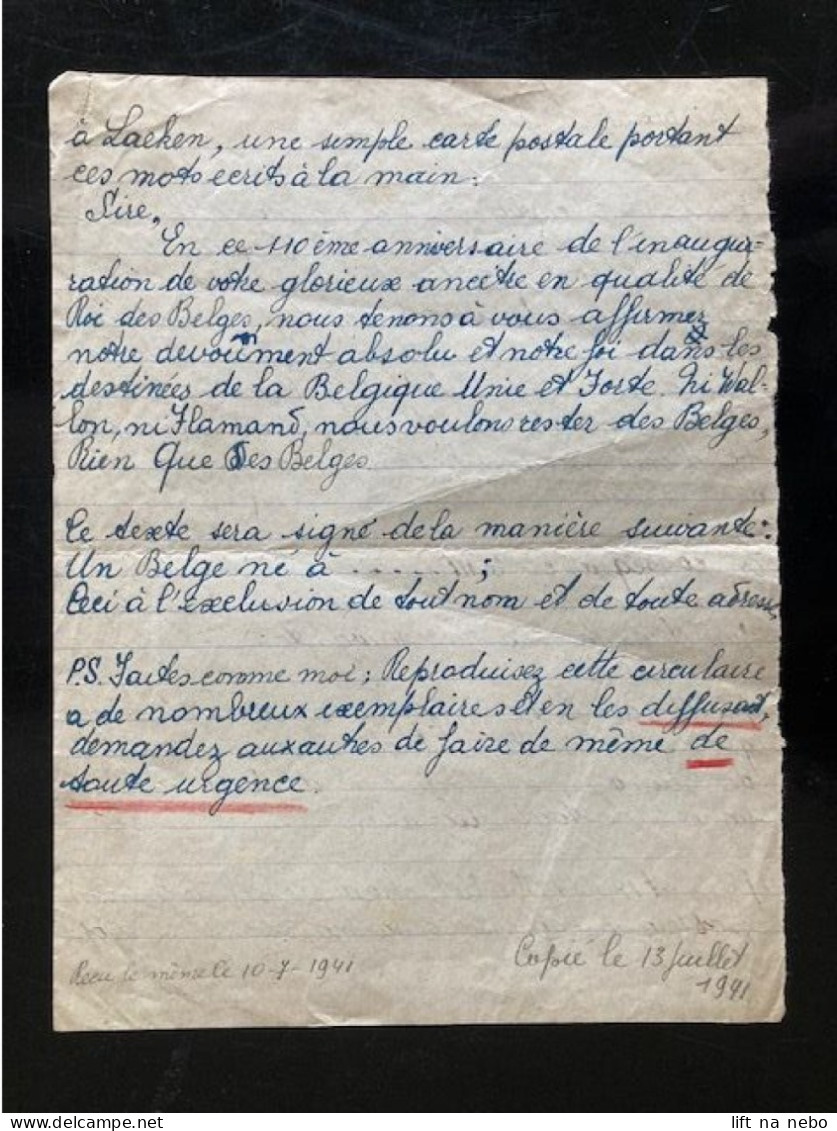 à Laeken, une simple carte postale portant
ces mots ecrits à la main:
Sire,
En ce 110ème anniversaire de l'inaugu-
ration de votre glorieux ancètre en qualité de
Roi des Belges, nous tenons à vous affirmer
notre devouement absolu et notre foi dans les
destinées de la Belgique Unie et Forte. Ni Wal-
lon, ni Flamand, nous voulons rester des Belges,
Rien Que Des Belges.
Ce texte sera signé de la manière suivante:
Un Belge né à ......;
Ceci à l'exclusion de tout nom et de toute adresse,
P.S. Faites comme moi; Reproduisez cette circulaire
a de nombreux exemplaires et en les diffusant,
demandez aux autres de faire de même de
toute urgence.
Recu le même le 10-7-1941
Copié le 13 Juillet
1941
lift na nebo